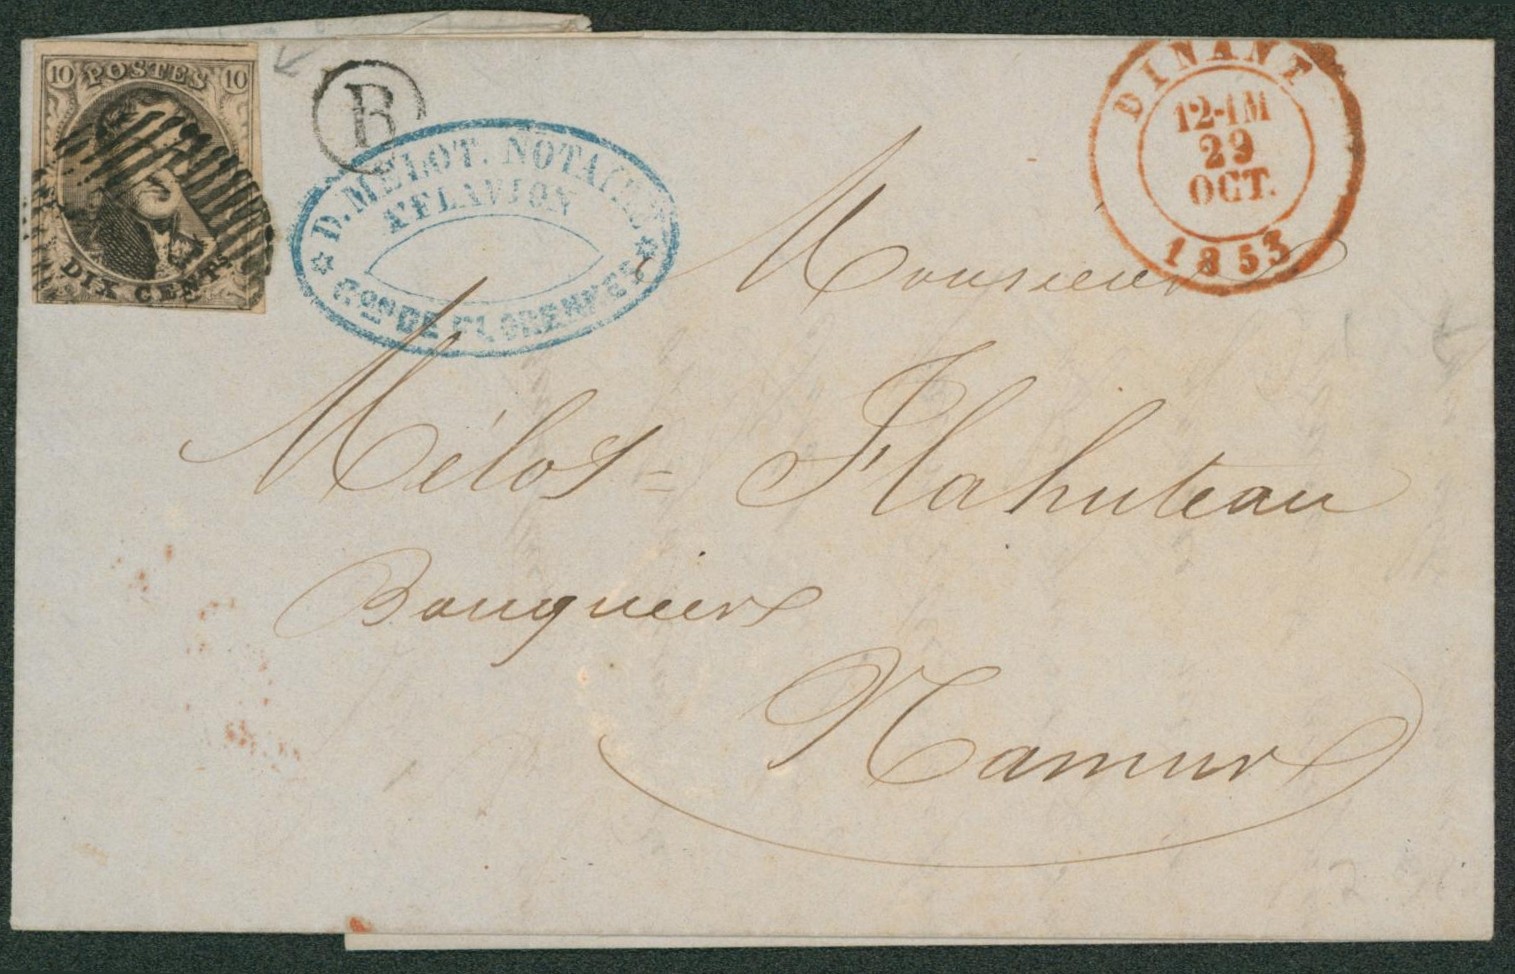 10 POSTES 10
DIX CENTS
B
D. MELOT. NOTAIRE
A FLAVION
Con DE FLORENNES
DINANT
12-1M
29
OCT.
1853
Monsieur
Mélot=Flahuteau
Banquier
Namur